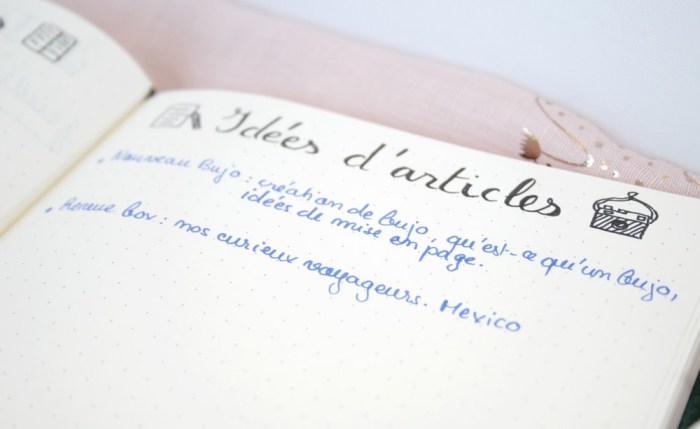 Idées d'articles
. Nouveau Bujo : création de bujo, qu'est-ce qu'un bujo,
idées de mise en page.
. Revue box : nos curieux voyageurs. Mexico